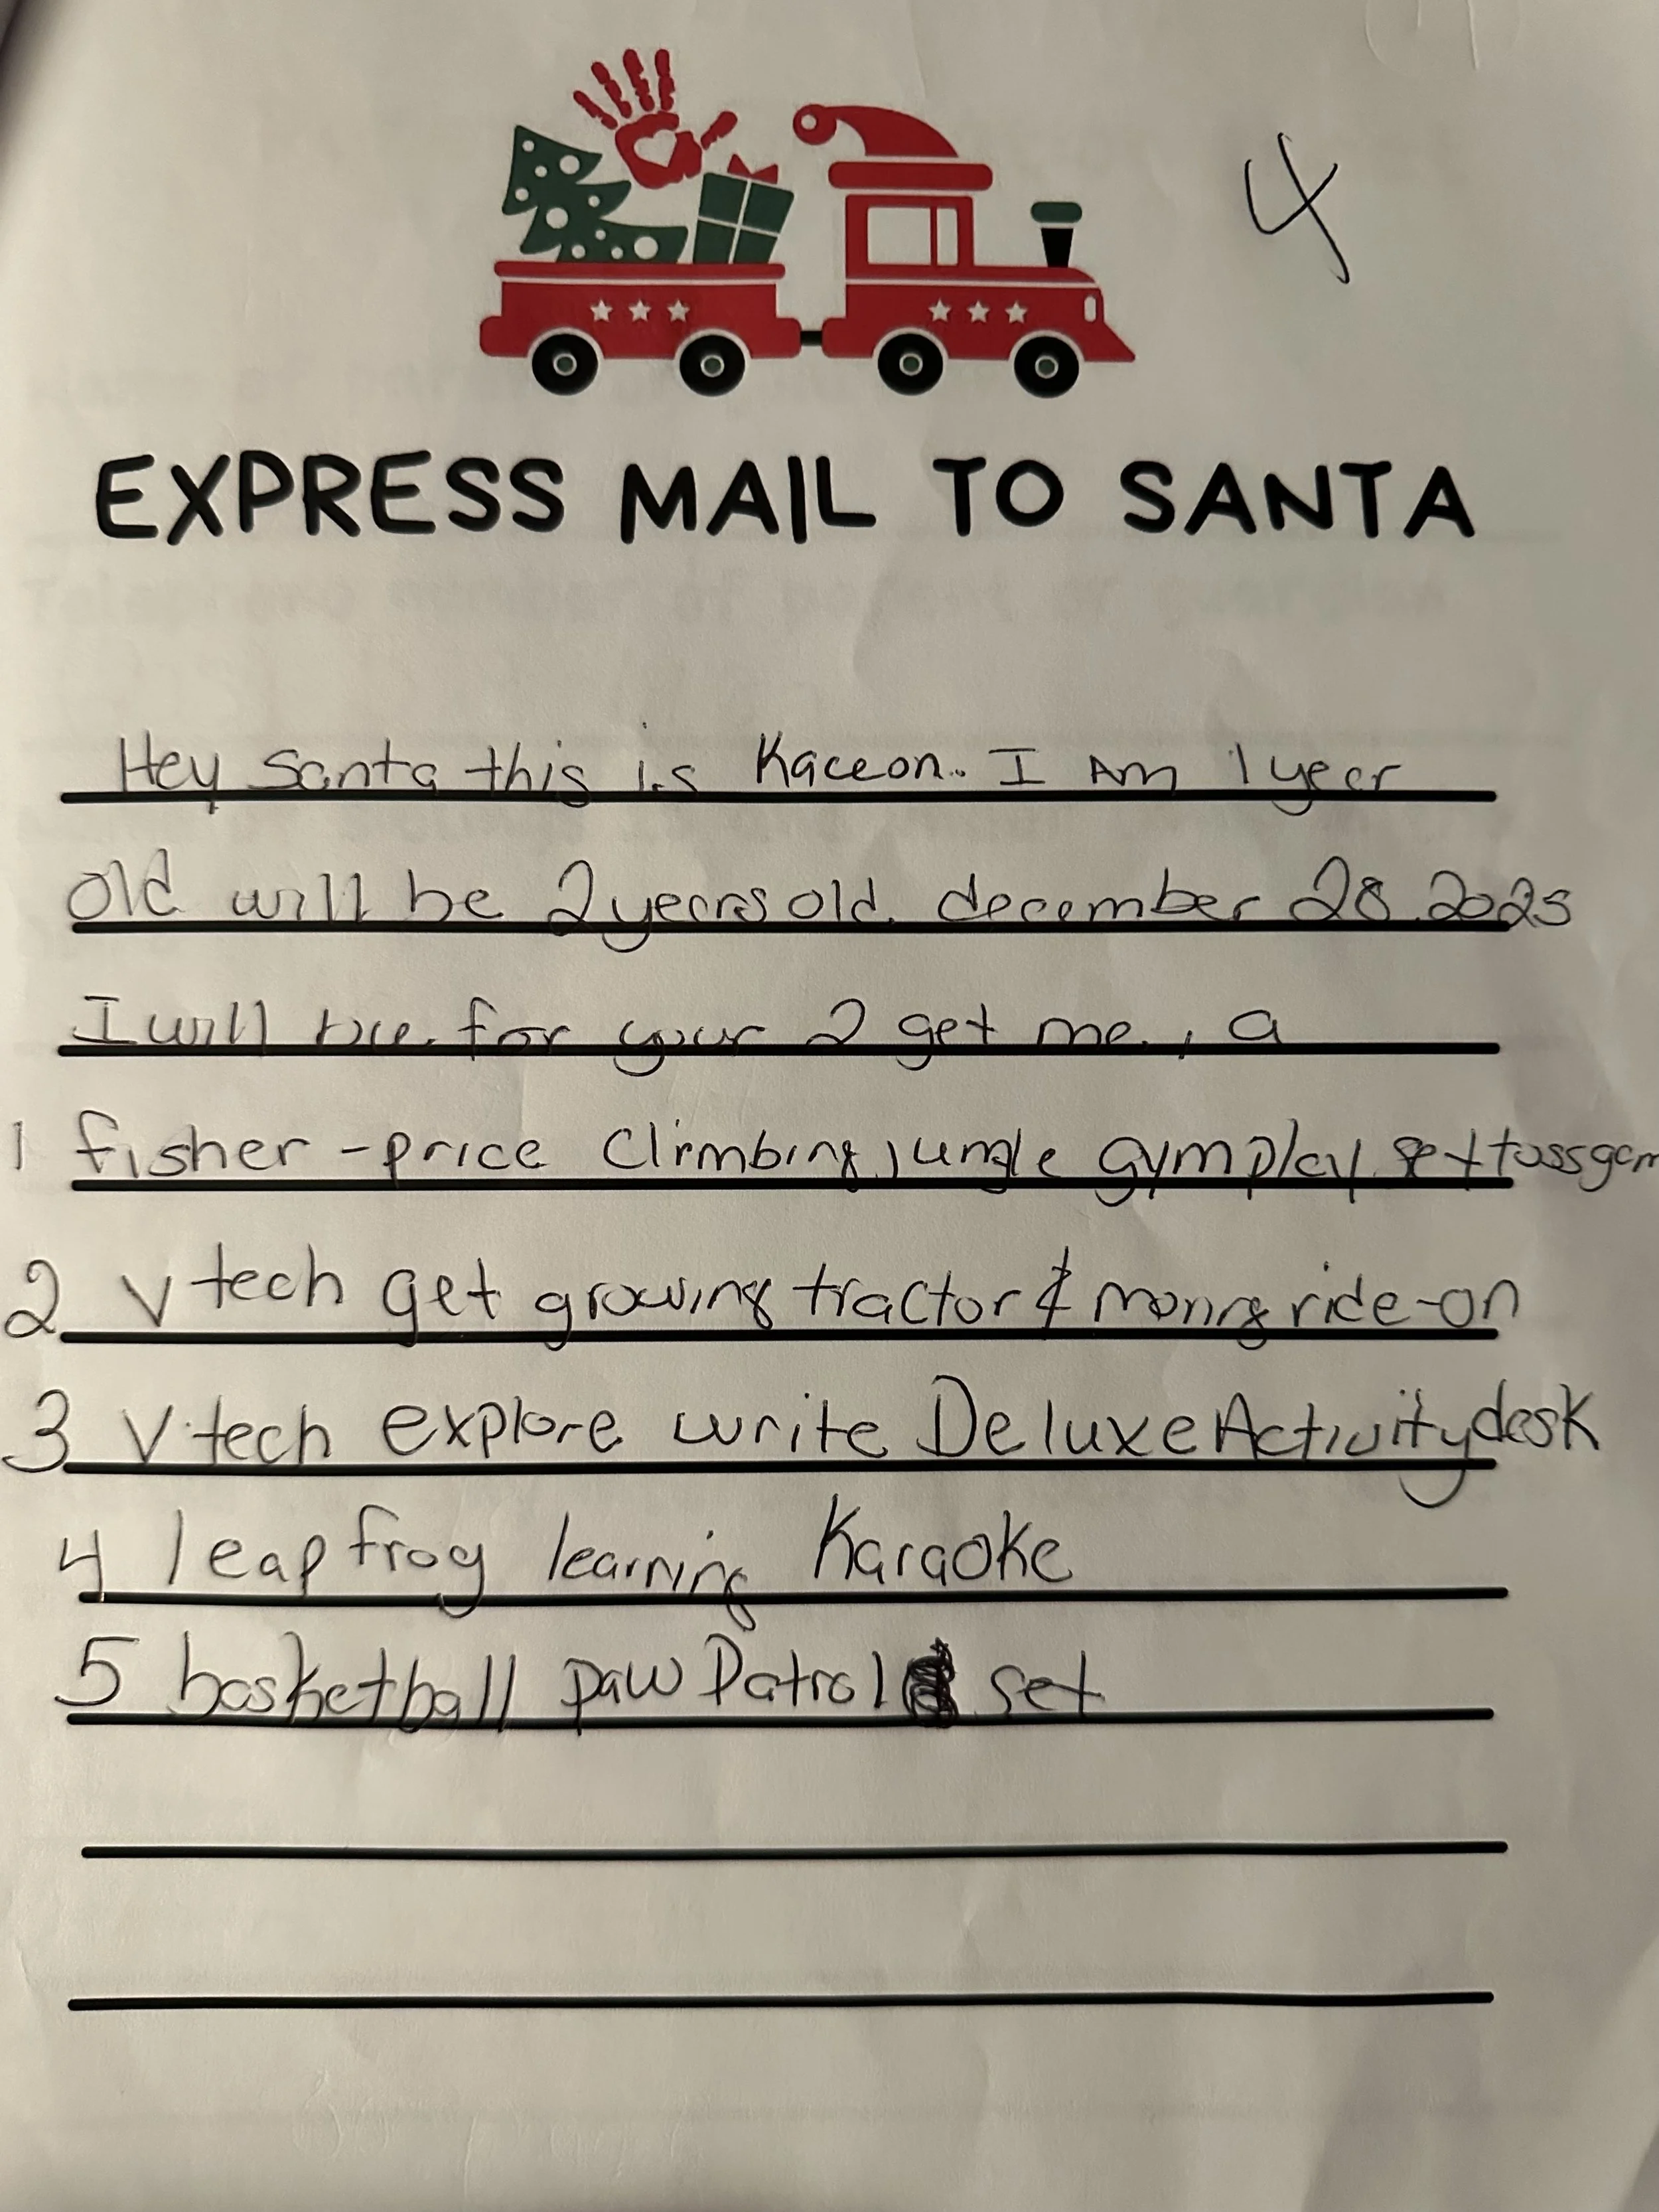 4
EXPRESS MAIL TO SANTA
Hey Santa this is Kaceon. I Am 1 year
old will be 2 years old. december 28. 2025
I will for your 2 get me, a
1 fisher-price Climbing jungle gym play set toss gam
2 Vtech get growing tractor & moning ride-on
3 Vtech explore write Deluxe Activity desk
4 leap frog learning Karaoke
5 basketball paw Patrol set